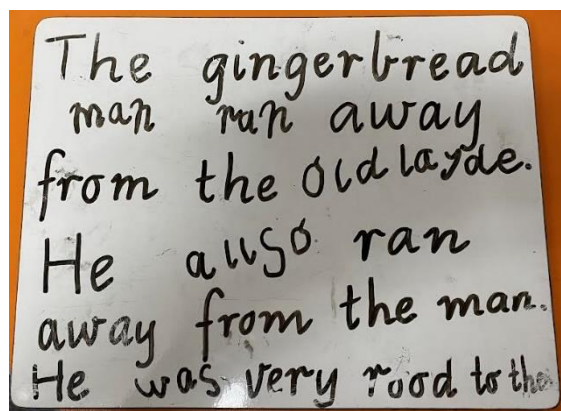 The gingerbread
man ran away
from the old layde.
He allso ran
away from the man.
He was very rood to the